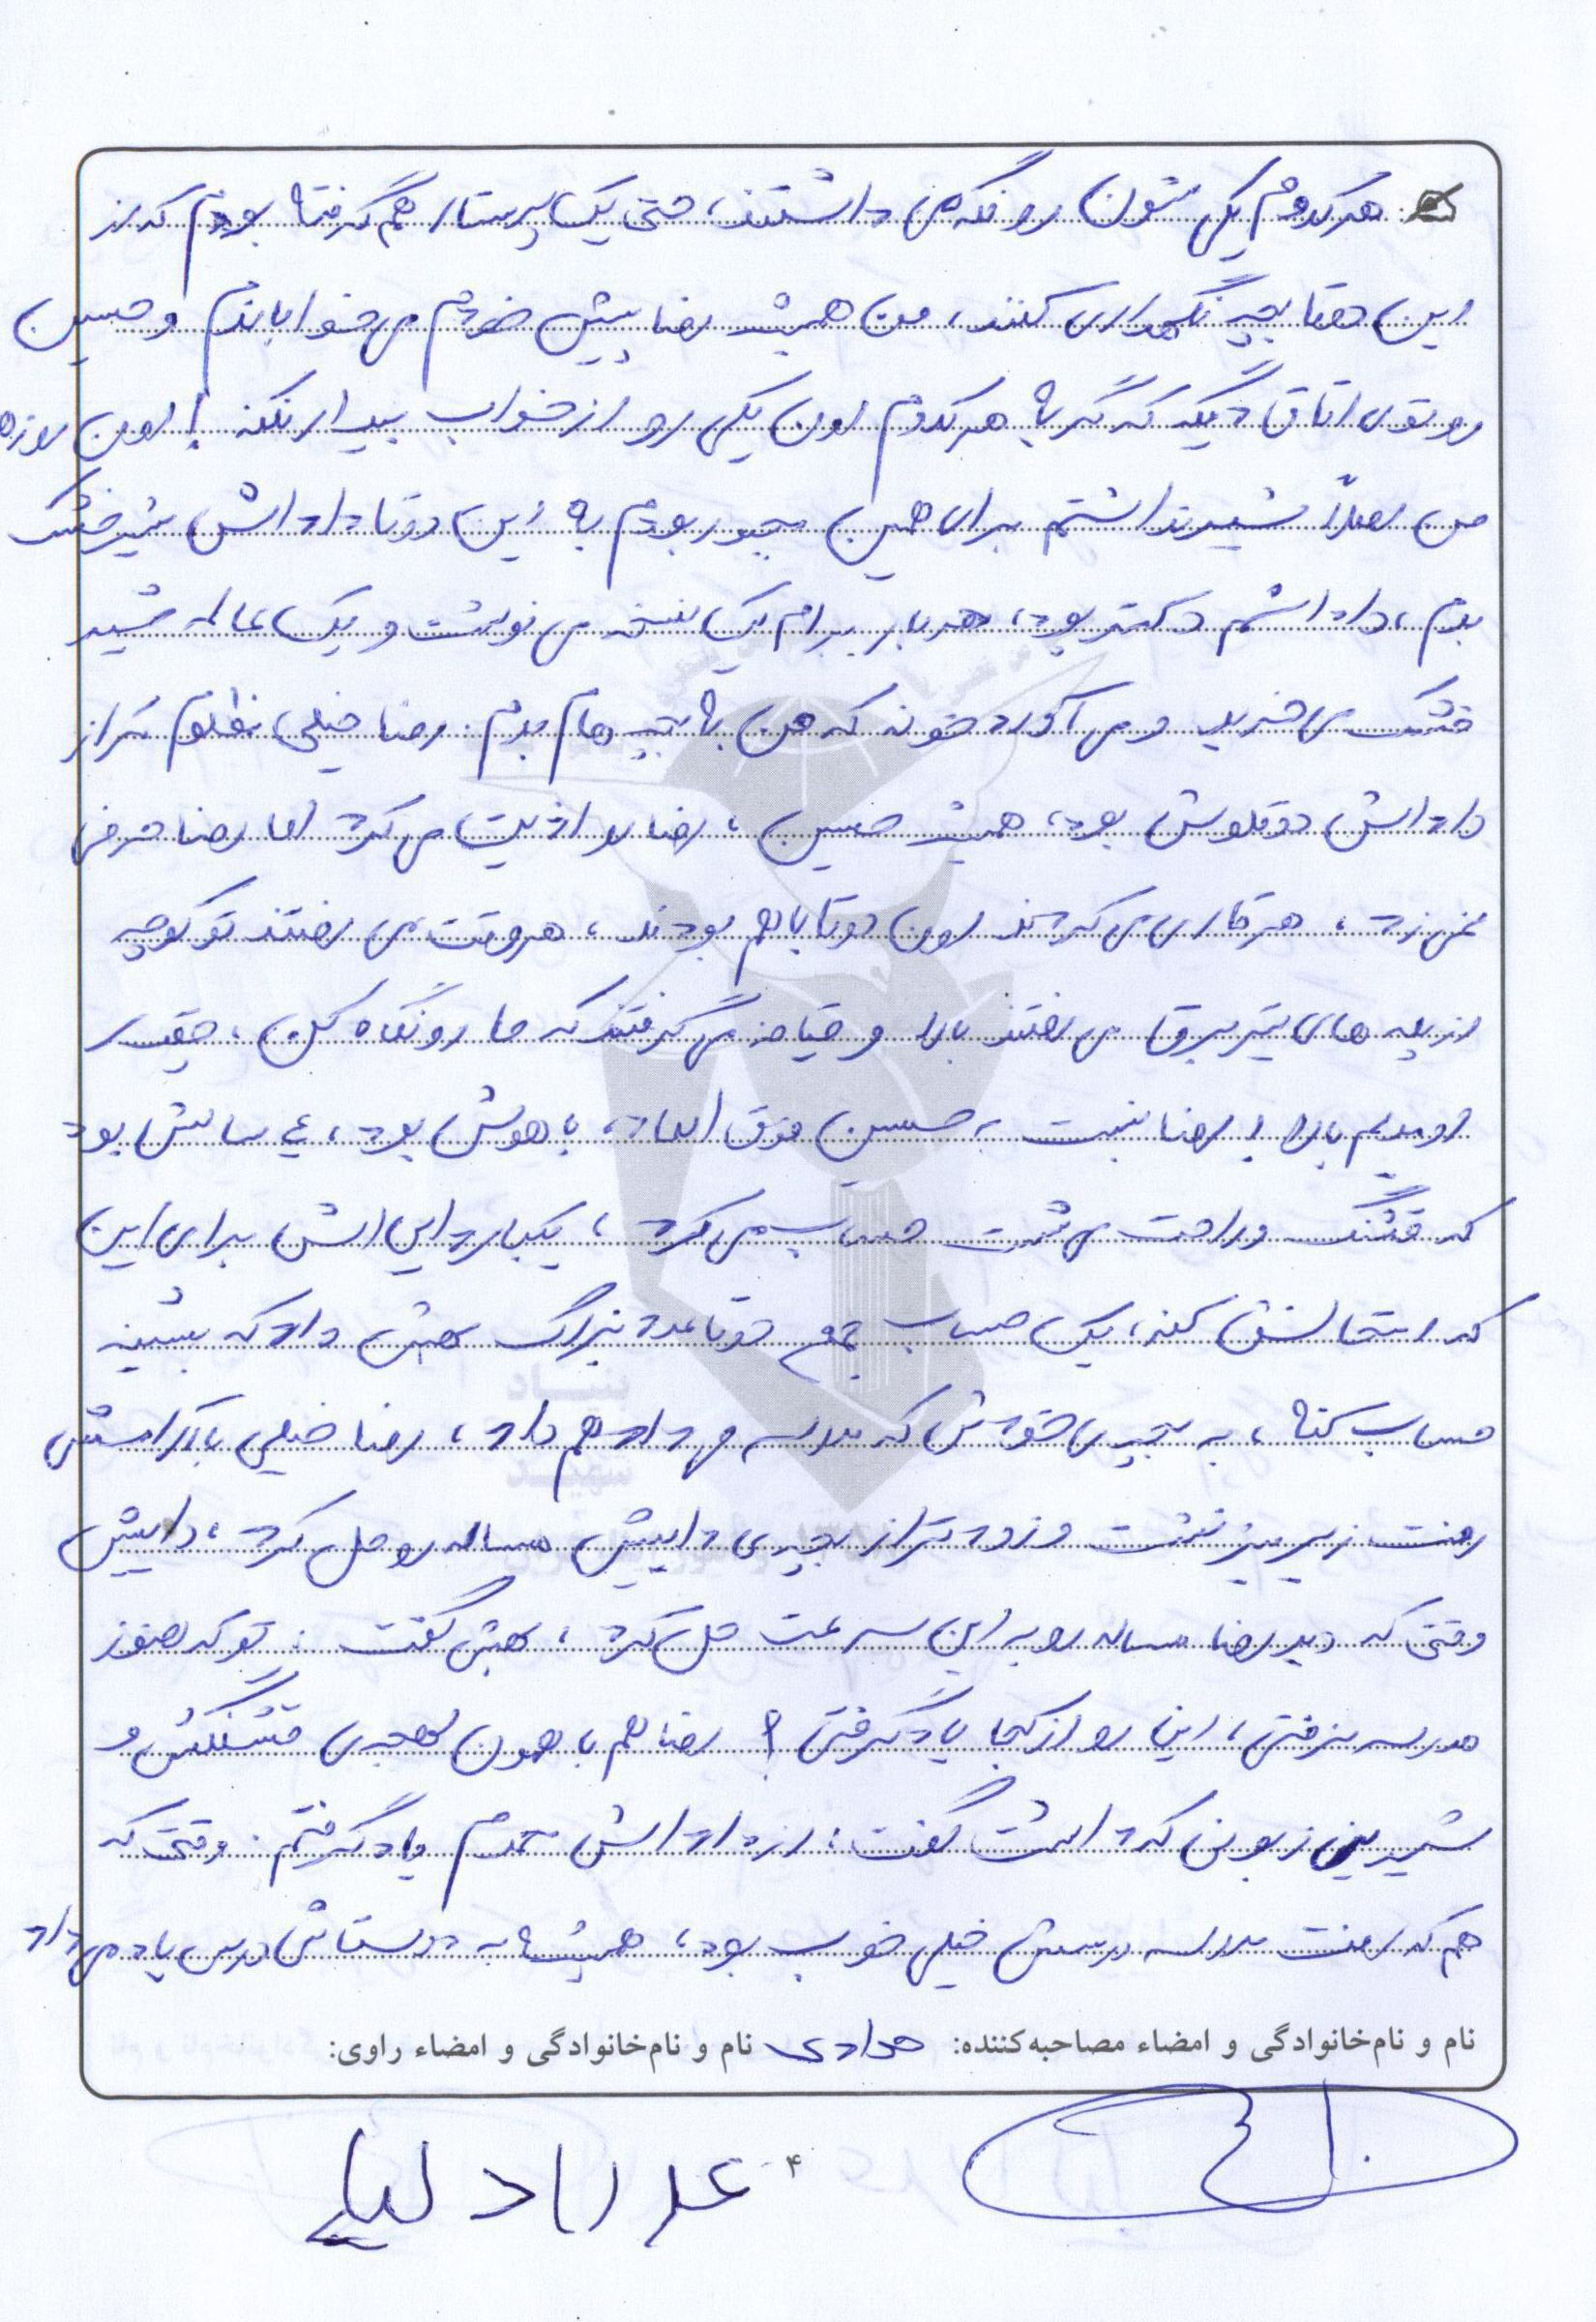 هر کدوم یکی شون رو نگه می داشتند، حتی یک پرستار هم گرفته بودم که از
این دوتا بچه نگهداری کنند، من همیشه رضا پیش خودم می خواباندم و حسین
رو توی اتاق دیگه که گریه هر کدوم اون یکی رو از خواب بیدار نکنه! اون روزها
من اصلاً شیر نداشتم برای همین مجبور بودم به این دوتا داداش شیرخشک
بدم، داداشم دکتر بود، هر بار برام یک نسخه می نوشت و یک عالمه شیر
خشک می خرید و می آورد خونه که من به بچه هام بدم. رضا خیلی مظلوم تر از
داداش دوقلوش بود، همیشه حسین، رضا رو اذیت می کرد اما رضا حرفی
نمی زد، هر کاری می کردند اون دوتا با هم بودند، هر وقت می رفتند تو کوچه
از پله های تیر برق می رفتند بالا و قیافه می گرفتند که ما رو نگاه کن، چقدر
اومدیم بالا! رضا نسبت به حسین فوق العاده با هوش بود، ۴ سالش بود
که قشنگ و راحت می نشست حساب می کرد، یکبار داییاش برای این
که امتحانش کنه، یک حساب جمع دوتا عدد بزرگ بهش داد که بشینه
حساب کنه، به بچه ی خودش که مدرسه می داد هم داد، رضا خیلی با آرامش
رفت زیر میز نشست و زودتر از بچه ی داییش مساله رو حل کرد، داییش
وقتی که دید رضا مساله رو به این سرعت حل کرد، بهش گفت: تو که هنوز
مدرسه نرفتی، این رو از کجا یاد گرفتی؟ رضا هم با همون لهجه ی قشنگش و
شیرین زبونی که داشت گفت: از داداش محمدم یاد گرفتم. وقتی که
هم که رفت مدرسه درسش خیلی خوب بود، همیشه به دوستاش درس یاد می داد
نام و نام‌خانوادگی و امضاء مصاحبه‌کننده: مرادی نام و نام‌خانوادگی و امضاء راوی:
۴